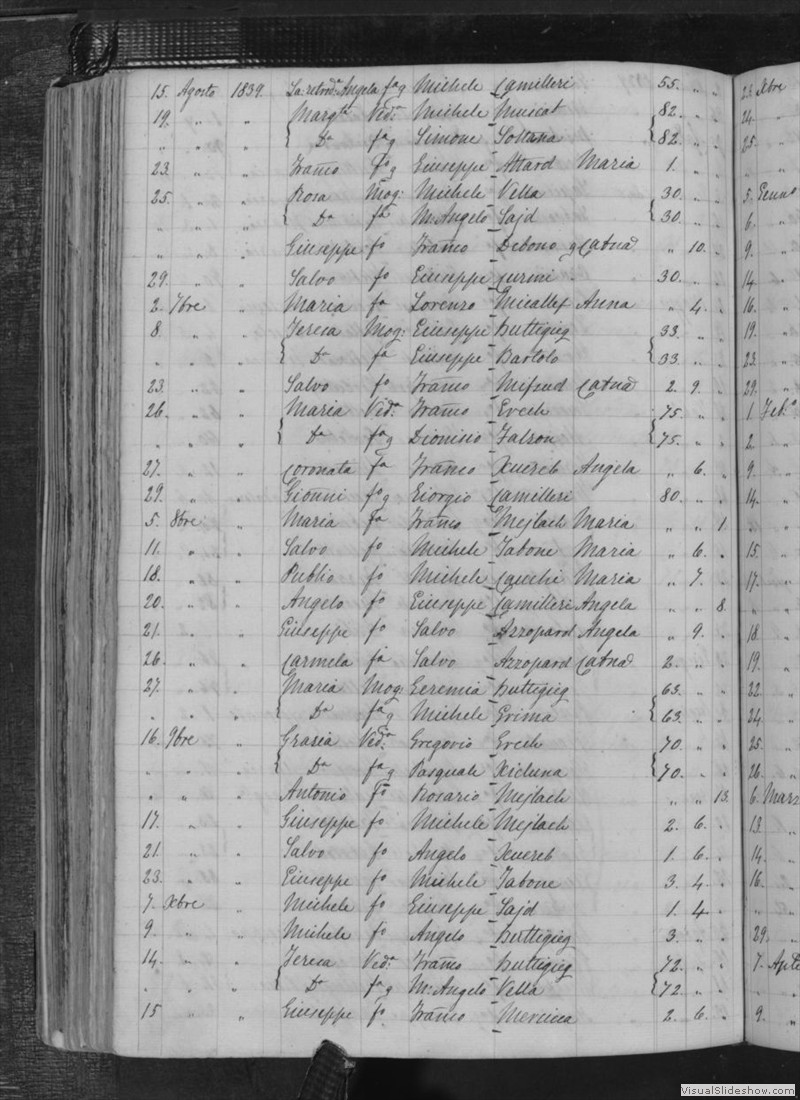 15. Agosto 1839. La retrod.ª Angela fª q Michele Camilleri 55. " "
19. " " Marg.ta Ved.ª Michele Muscat 82. " "
" " " { D.ª fª q Simone Soltana { 82. " "
23. " " Fran.co fº q Giuseppe Attard Maria 1. " "
25. " " Rosa Mog: Michele Vella 30. " "
" " " { D.ª fª M. Angelo Sajd { 30. " "
" " " Giuseppe fº Fran.co Debono q Cat.na " 10. "
29. " " Salvo fº Giuseppe Curmi 30. " "
2. 7bre " Maria fª Lorenzo Micallef Anna " 4. "
8. " " Teresa Mog: Giuseppe Buttigieg 33. " "
" " " { D.ª fª Giuseppe Bartolo { 33. " "
23. " " Salvo fº Fran.co Mifsud Cat.na 2. 9. "
26. " " Maria Ved.ª Fran.co Grech 75. " "
" " " { D.ª fª q Dionisio Falzon { 75. " "
27. " " Coronata fª Fran.co Xuereb Angela " 6. "
29. " " Gionni fº q Giorgio Camilleri 80. " "
5. 8bre " Maria fª Fran.co Mejlach Maria " " 1
11. " " Salvo fº Michele Tabone Maria " 6. "
18. " " Publio fº Michele Cauchi Maria " 7. "
20. " " Angelo fº Giuseppe Camilleri Angela " " 8.
21. " " Giuseppe fº Salvo Azzopard Angela " 9. "
26. " " Carmela fª Salvo Azzopard Cat.na 2. " "
27. " " Maria Mog: Geremia Buttigieg 63. " "
" " " { D.ª fª q Michele Grima { 63. " "
16. 9bre " Grazia Ved.ª Gregorio Grech 70. " "
" " " { D.ª fª q Pasquale Xicluna { 70. " "
" " " Antonio fº Rosario Mejlach " " 13.
17. " " Giuseppe fº Michele Mejlach 2. 6. "
21. " " Salvo fº Angelo Xuereb 1. 6. "
23. " " Giuseppe fº Michele Tabone 3. 4. "
7. Xbre " Michele fº Giuseppe Sajd 1. 4 "
9. " " Michele fº Angelo Buttigieg 3. " "
14. " " Teresa Ved.ª Fran.co Buttigieg 72. " "
" " " { D.ª fª q M. Angelo Vella { 72 " "
15 " " Giuseppe fº Fran.co Mercieca 2. 6. "
23 Xbre
24.
25.
"
5. Genno
6.
9.
14.
16.
19.
23.
29.
1. Feb.º
2.
9.
14.
"
15.
17.
"
18.
19.
22.
24.
25.
26.
6. Marz
13.
14.
16.
"
29.
7.
9.
VisualSlideshow.com